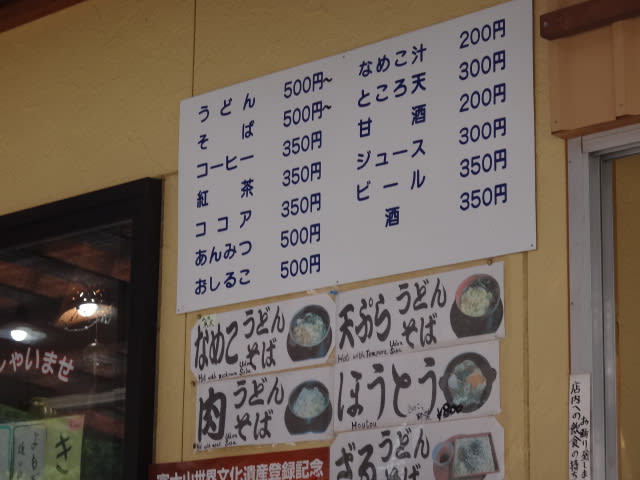 うどん 500円~
そば 500円~
コーヒー 350円
紅茶 350円
ココア 350円
あんみつ 500円
おしるこ 500円
なめこ汁 200円
ところ天 300円
甘酒 200円
ジュース 300円
ビール 350円
酒 350円
なめこうどんそば
天ぷらうどんそば
Hot with Tempura Udon Soba
肉うどんそば
ほうとう
Houtou
¥800
ざるうどんそば
富士山世界文化遺産登録記念
しゃいませ
き
店内への飲食の持ち